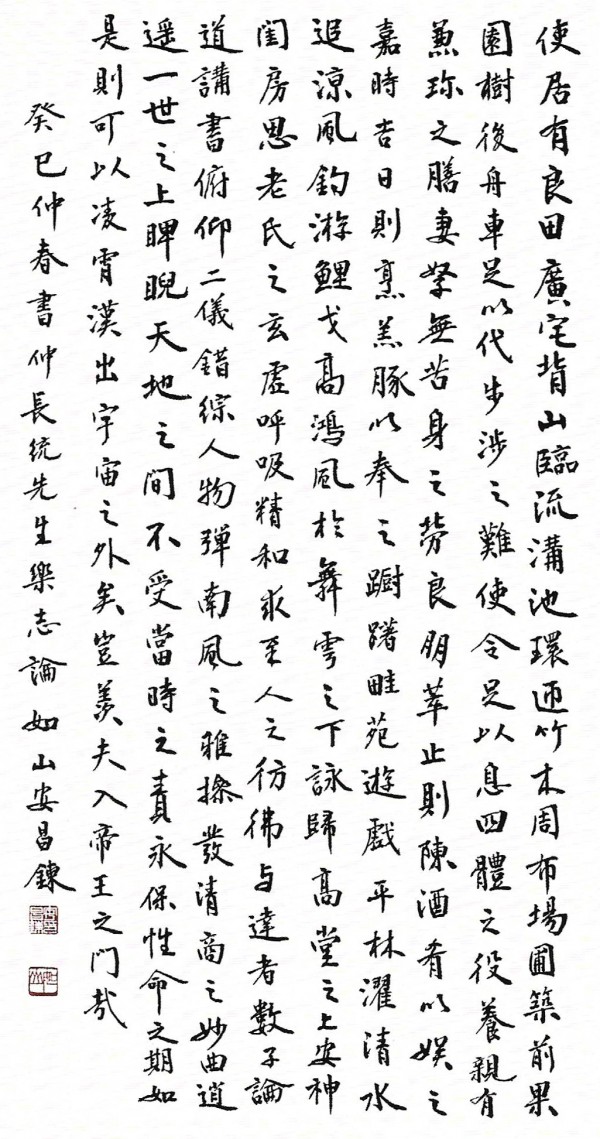 使居有良田廣宅背山臨流溝池環迊竹木周布場圃築前果
園樹後舟車足以代步涉之難使令足以息四體之役養親有
兼珎之膳妻孥無苦身之勞良朋萃止則陳酒肴以娛之
嘉時吉日則烹羔豚以奉之躕躇畦苑遊戱平林濯清水
追涼風釣游鯉弋高鴻風於舞雩之下詠歸高堂之上安神
閨房思老氏之玄虛呼吸精和求至人之彷彿与達者數子論
道講書俯仰二儀錯綜人物彈南風之雅操發清商之妙曲逍
遥一世之上睥睨天地之間不受當時之責永保性命之期如
是則可以凌霄漢出宇宙之外矣豈羨夫入帝王之門哉
癸巳仲春書仲長統先生樂志論如山安昌鍊